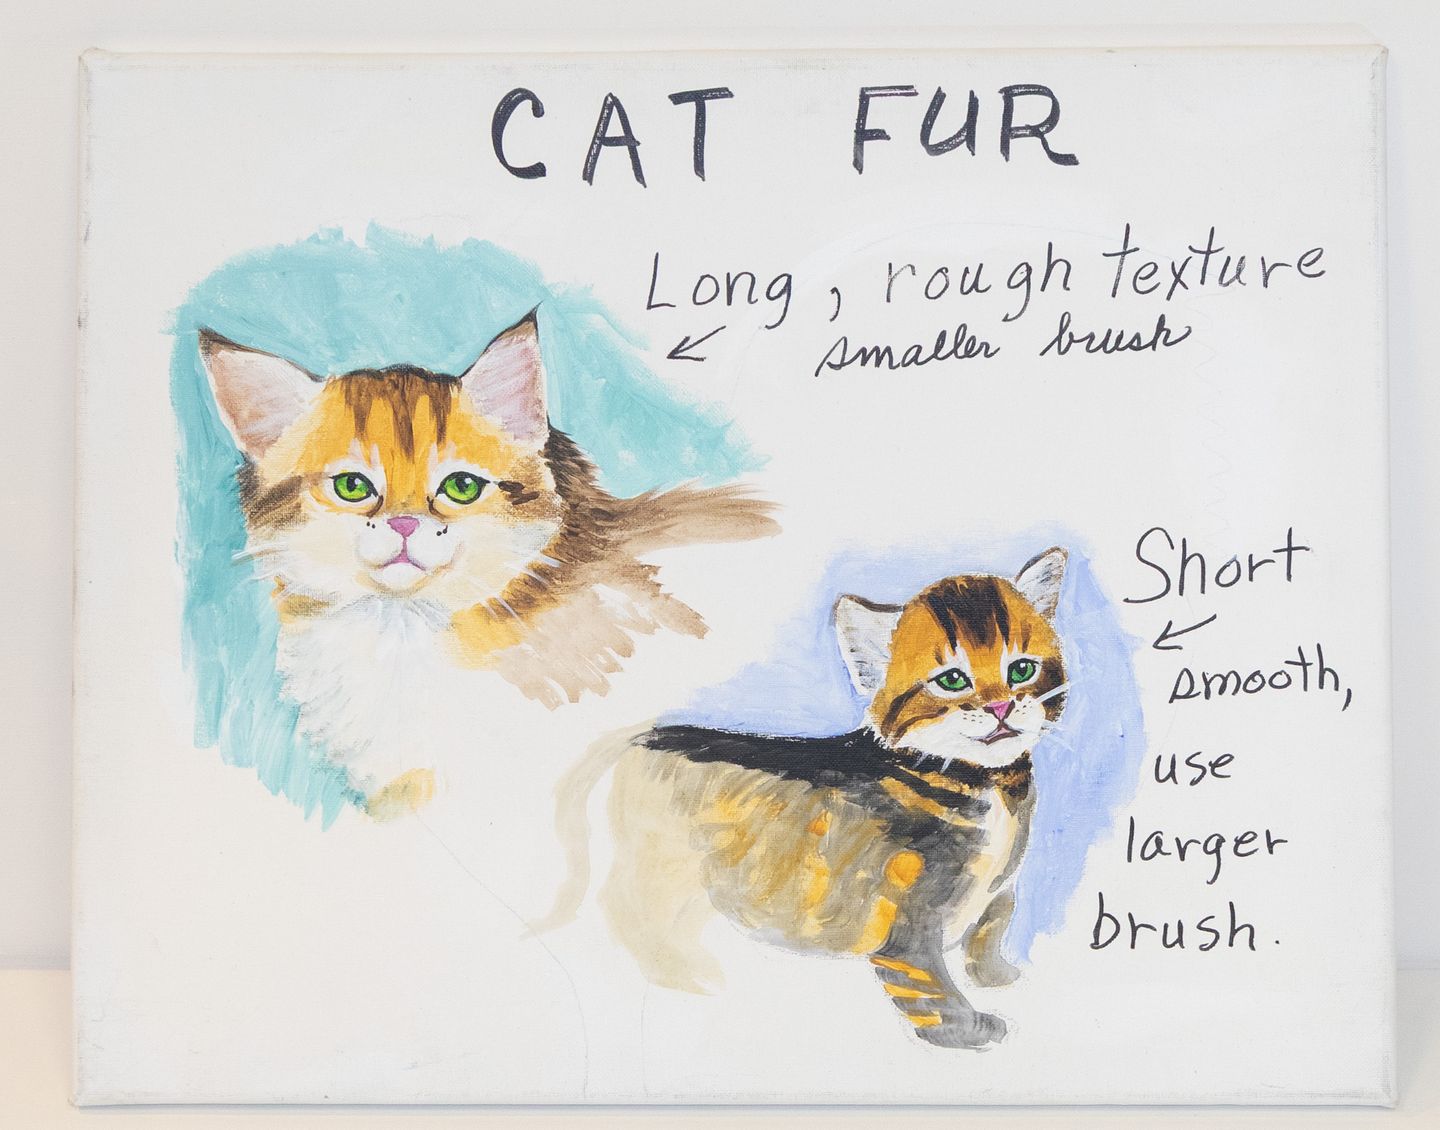 CAT FUR
Long, rough texture
smaller brush
Short
smooth,
use
larger
brush.